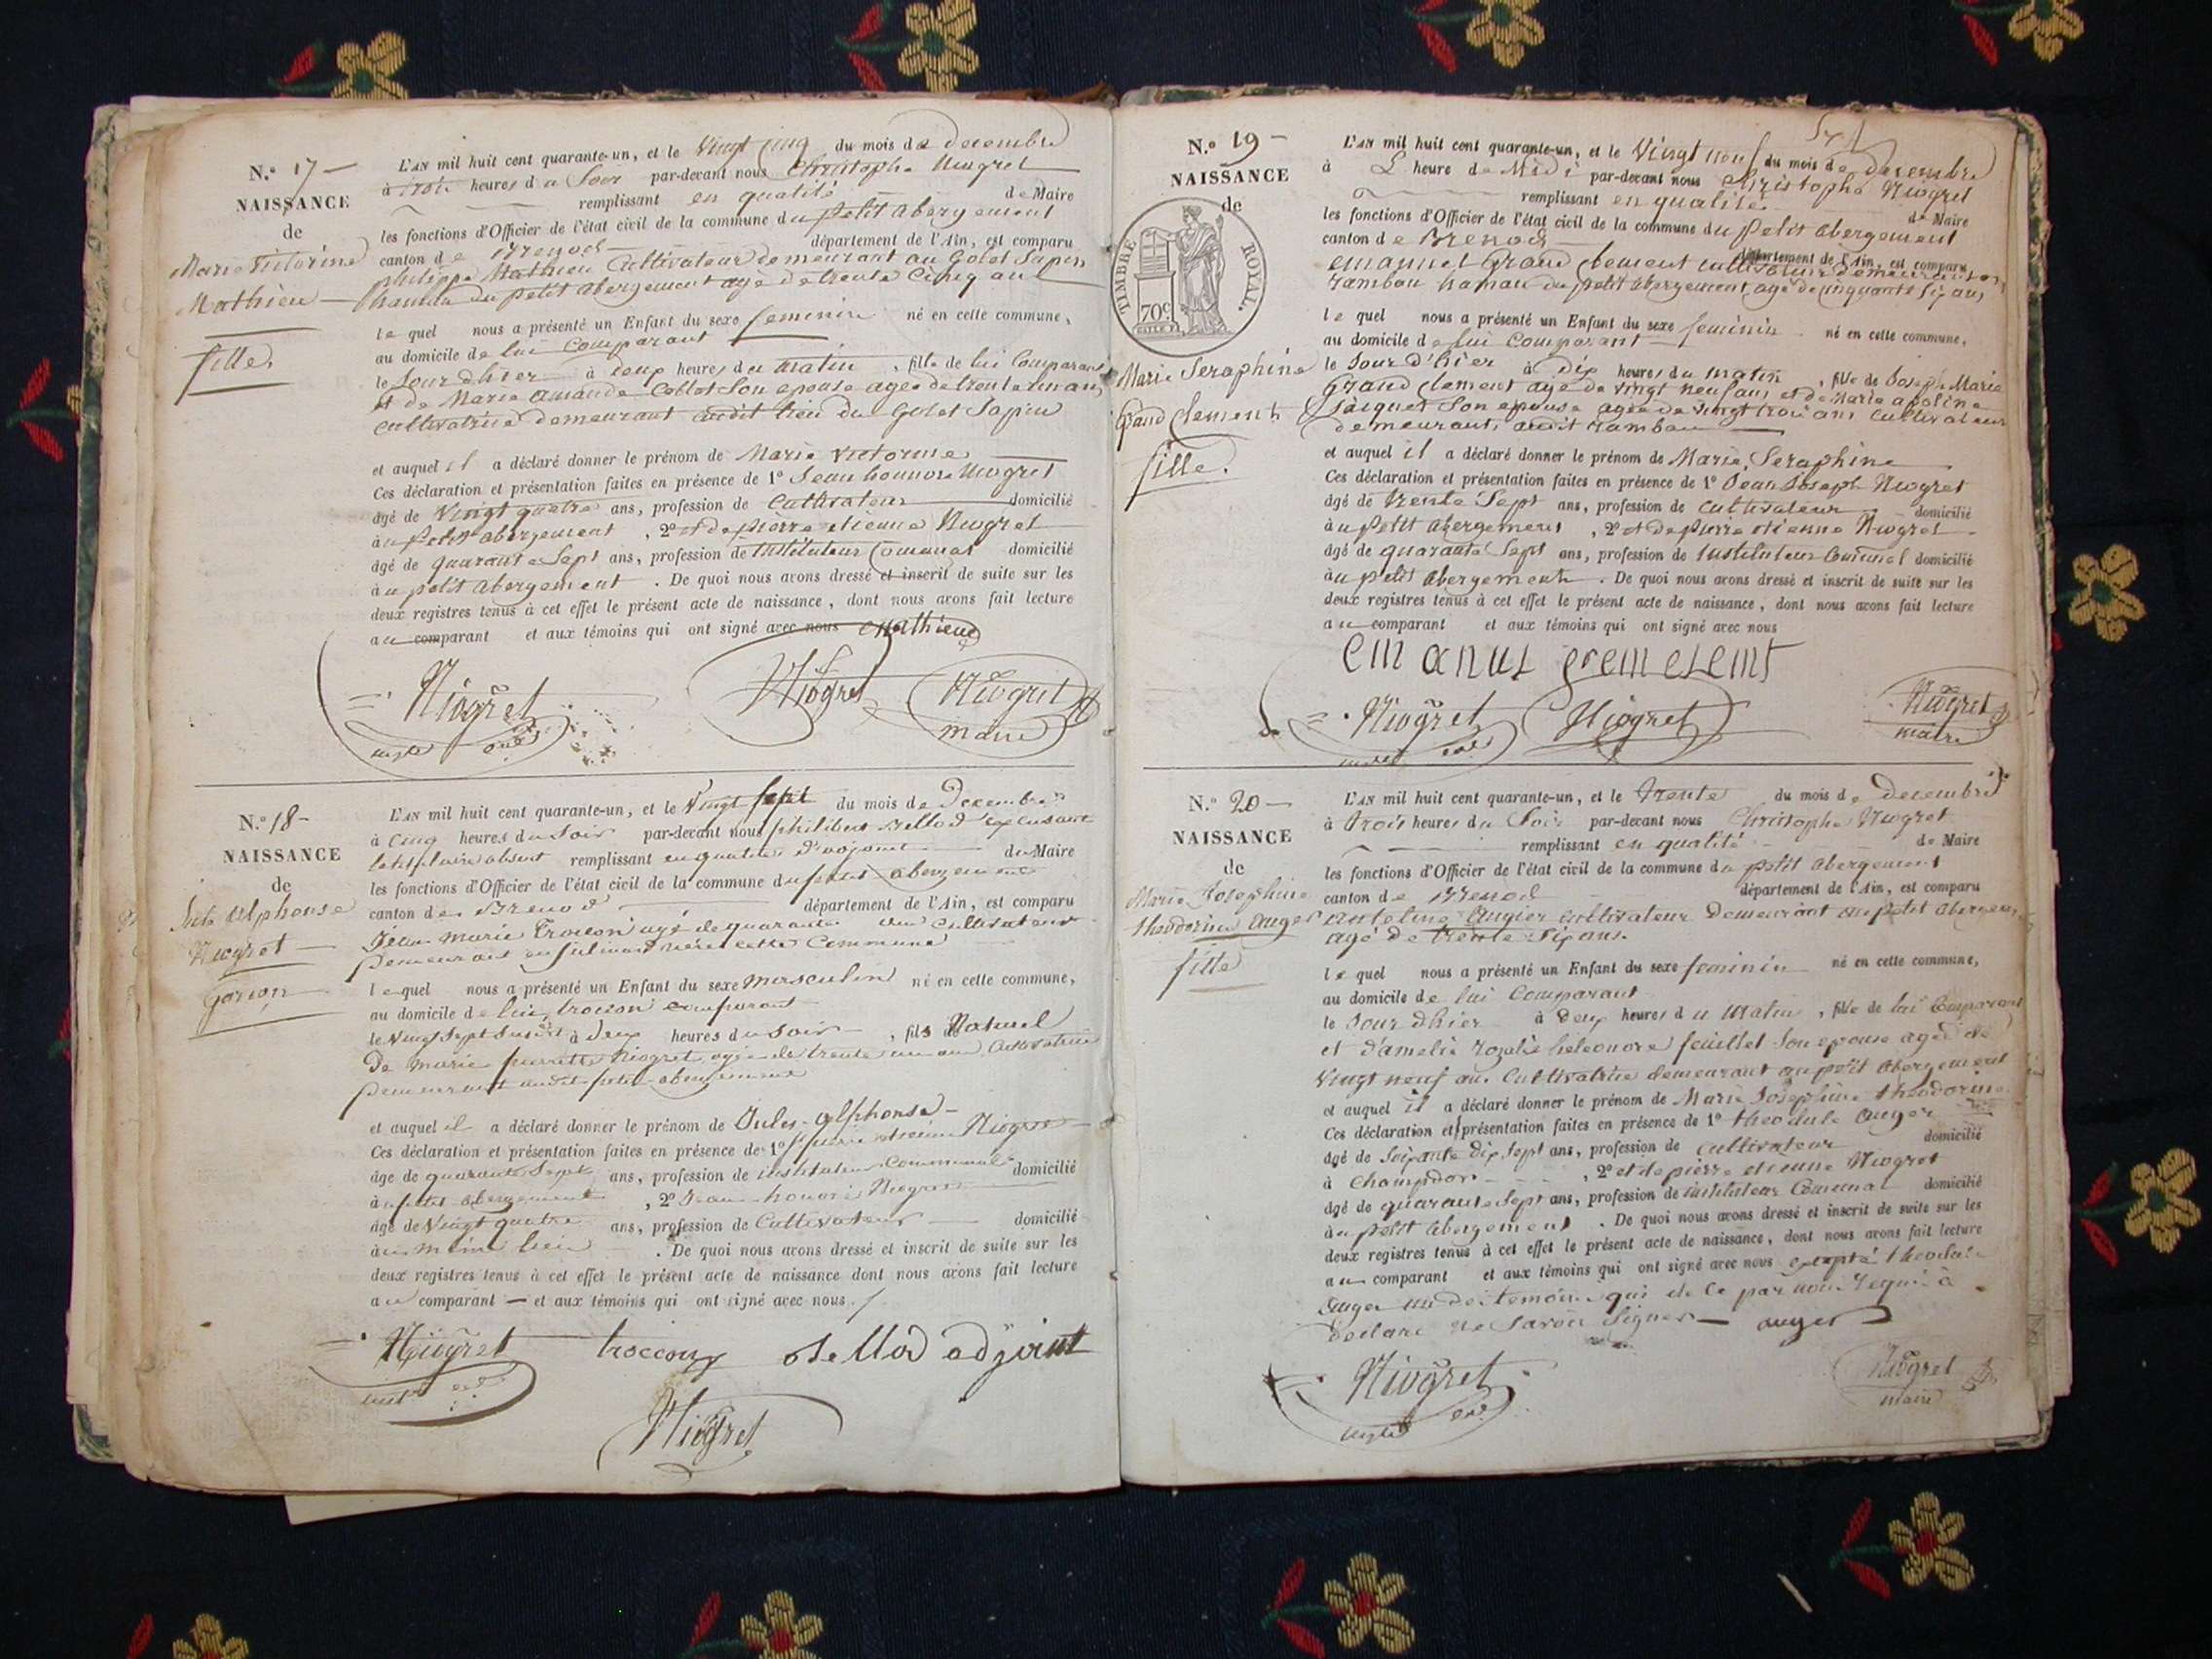 N.° 17 —
NAISSANCE
de
Marie Victorine
Mathieu —
fille
L'AN mil huit cent quarante-un, et le Vingt Cinq du mois de decembre
à trois heures du Soir par-devant nous Christophe Niogret
remplissant en qualité de Maire
les fonctions d'Officier de l'état civil de la commune du petit abergement
canton de Brenod département de l'Ain, est comparu
philippe Mathieu Cultivateur demeurant au Golet Sapin
hamau du petit abergement agé de trente Cinq ans
le quel nous a présenté un Enfant du sexe feminin né en cette commune,
au domicile de lui Comparant
le Jour dhier à deux heures du matin, fille de lui Comparant
et de Marie amande Collet Son epouse agee de trente un ans
cultivatrice demeurant audit lieu du Golet Sapin
et auquel il a déclaré donner le prénom de Marie Victorine
Ces déclaration et présentation faites en présence de 1° Jean honnore Niogret
âgé de Vingt quatre ans, profession de Cultivateur domicilié
à u petit abergement, 2° et de pierre etienne Niogret
âgé de quarante Sept ans, profession de instituteur Comunal domicilié
à u petit abergement. De quoi nous avons dressé et inscrit de suite sur les
deux registres tenus à cet effet le présent acte de naissance, dont nous avons fait lecture
au comparant et aux témoins qui ont signé avec nous Mathieu
Niogret Niogret Niogret
maire
N.° 18 —
NAISSANCE
de
Jules Alphonse
Niogret —
Garçon
L'AN mil huit cent quarante-un, et le Vingt Sept du mois de Decembre
à Cinq heures du Soir par-devant nous philibert Bellod
absent remplissant en qualité d'adjoint de Maire
les fonctions d'Officier de l'état civil de la commune du petit abergement
canton de Brenod département de l'Ain, est comparu
Jean Marie Troccon agé de quarante un Cultivateur
le quel nous a présenté un Enfant du sexe masculin né en cette commune,
au domicile de lui troccon comparant
le Vingt Sept à deux heures du Soir, fils Naturel
De marie pierrette Niogret agée de trente un ans Cultivatrice
Demeurant audit petit abergement
et auquel il a déclaré donner le prénom de Jules-alphonse —
Ces déclaration et présentation faites en présence de 1° pierre etienne Niogret
âge de quarante Sept ans, profession de instituteur Communal domicilié
à u petit abergement, 2° Jean honoré Niogret
âgé de Vingt quatre ans, profession de Cultivateur domicilié
à u même lieu. De quoi nous avons dressé et inscrit de suite sur les
deux registres tenus à cet effet le présent acte de naissance dont nous avons fait lecture
au comparant — et aux témoins qui ont signé avec nous
Niogret troccon Bellod adjoint
Niogret
N.° 19 —
NAISSANCE
de
TIMBRE ROYAL.
70c
Marie Seraphine
Grand Clement
fille.
L'AN mil huit cent quarante-un, et le Vingt neuf du mois de decembre
à L heure de Midi par-devant nous Christophe Niogret
remplissant en qualité de Maire
les fonctions d'Officier de l'état civil de la commune du petit abergement
canton de Brenod département de l'Ain, est comparu
emanuel Grand Clement cultivateur demeurant en
rambau hamau du petit abergement agé de cinquante Six ans
le quel nous a présenté un Enfant du sexe feminin né en cette commune,
au domicile de lui Comparant
le Jour d'hier à dix heures du matin, fille de Joseph Marie
Grand Clement agé de vingt neuf ans et de Marie apoline
Jacquet Son epouse agée de vingt trois ans Cultivateurs
demeurants audit rambau
et auquel il a déclaré donner le prénom de Marie Seraphine
Ces déclaration et présentation faites en présence de 1° Jean Joseph Niogret
âgé de trente Sept ans, profession de cultivateur domicilié
à u petit abergement, 2° et de pierre etienne Niogret
âgé de quarante Sept ans, profession de instituteur Comunal domicilié
à u petit abergement. De quoi nous avons dressé et inscrit de suite sur les
deux registres tenus à cet effet le présent acte de naissance, dont nous avons fait lecture
au comparant et aux témoins qui ont signé avec nous
emanuel
Niogret Niogret Niogret
maire
N.° 20 —
NAISSANCE
de
Marie Josephine
theodorine Auger
fille
L'AN mil huit cent quarante-un, et le trente du mois de decembre
à trois heures du Soir par-devant nous Christophe Niogret
remplissant en qualité de Maire
les fonctions d'Officier de l'état civil de la commune du petit abergement
canton de Brenod département de l'Ain, est comparu
antelme Augier cultivateur demeurant au petit abergement
agé de trente six ans.
le quel nous a présenté un Enfant du sexe feminin né en cette commune,
au domicile de lui Comparant
le Jour dhier à deux heures du matin, fille de lui Comparant
et d'amelie rozalie heleonore feuillet Son epouse agée de
Vingt neuf ans Cultivatrice demeurant au petit abergement
et auquel il a déclaré donner le prénom de Marie Josephine theodorine
Ces déclaration et présentation faites en présence de 1° theodule Auger
âgé de Soixante dix Sept ans, profession de cultivateur domicilié
à Champdor, 2° et de pierre etienne Niogret
âgé de quarante Sept ans, profession de instituteur Comunal domicilié
à u petit abergement. De quoi nous avons dressé et inscrit de suite sur les
deux registres tenus à cet effet le présent acte de naissance, dont nous avons fait lecture
au comparant et aux témoins qui ont signé avec nous excepté theodule
auger un des temoins qui de Ce par nous requis à
declaré ne Savoir Signer — auger
Niogret Niogret
maire